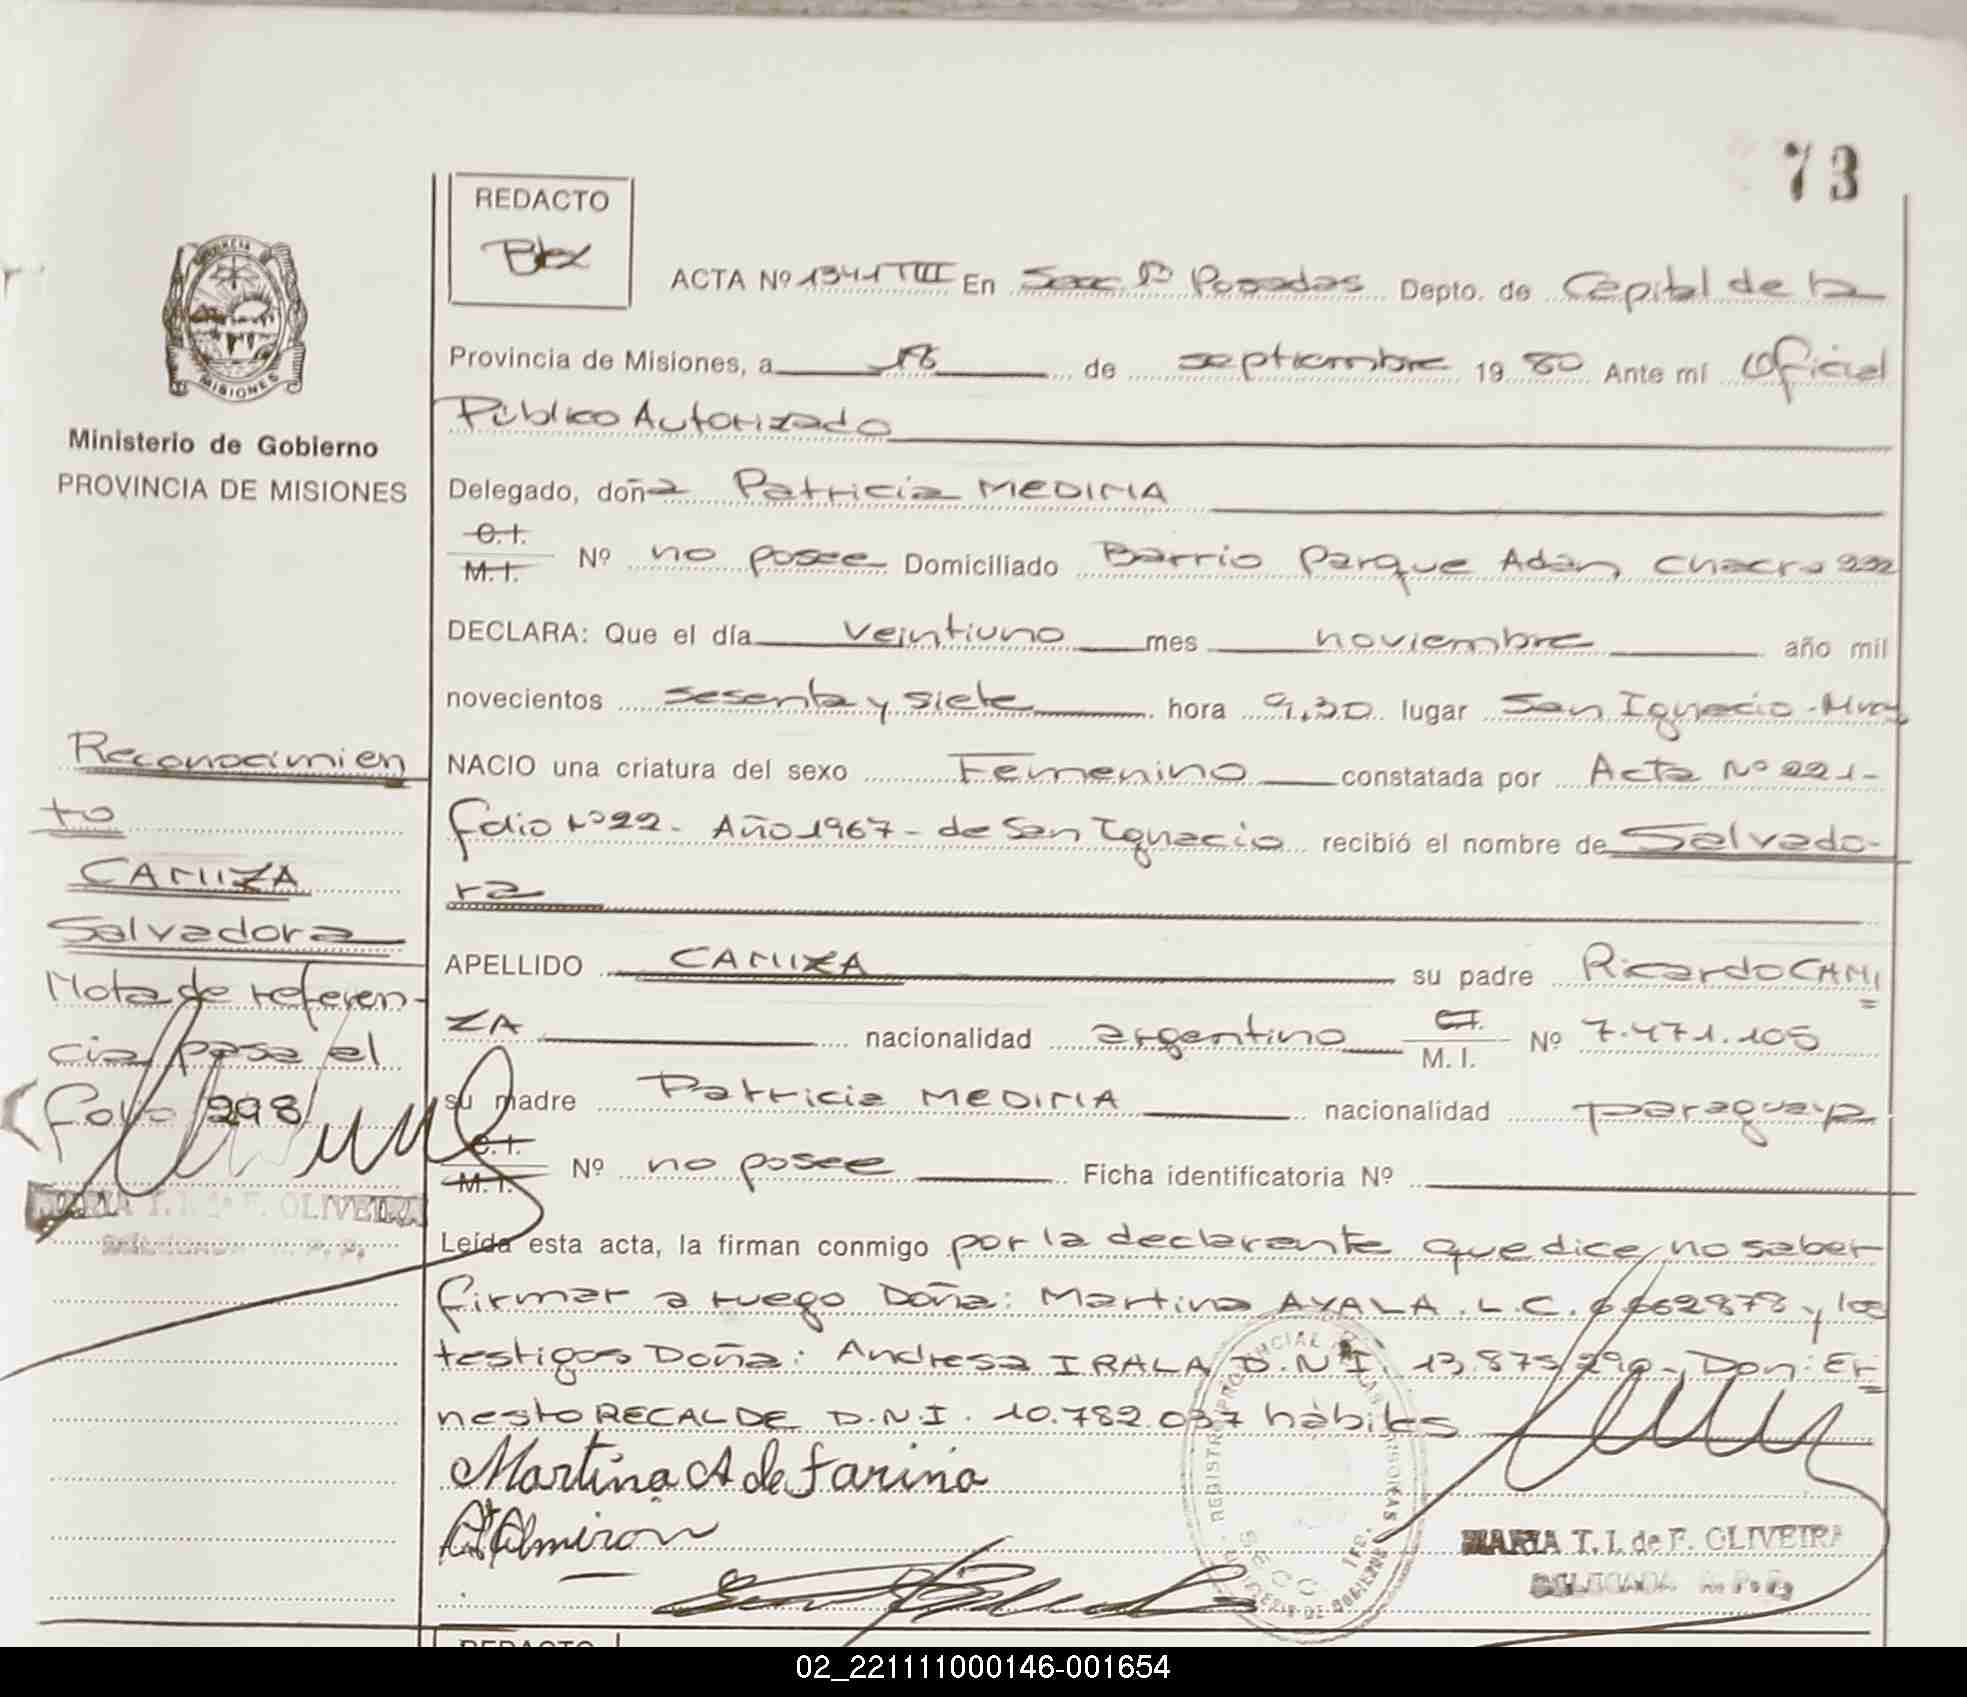 73
REDACTO
ACTA Nº 1341 TIII En Secc. 1ª Posadas Depto. de Capital de la
Provincia de Misiones, a 18 de septiembre 1980 Ante mí Oficial
Público Autorizado
MISIONES
Ministerio de Gobierno
PROVINCIA DE MISIONES
Delegado, doña Patricia MEDINA
C.I.
M.I. Nº no posee Domiciliado Barrio Parque Adán, Chacra 232
DECLARA: Que el día veintiuno mes noviembre año mil
novecientos sesenta y siete hora 9,30 lugar San Ignacio-Mnes
NACIO una criatura del sexo Femenino constatada por Acta Nº 221-
folio Nº 22- Año 1967- de San Ignacio recibió el nombre de Salvado-
ra
APELLIDO CANIZA su padre Ricardo CANI
ZA nacionalidad argentino C.I. M.I. Nº 7.471.105
su madre Patricia MEDINA nacionalidad paraguaya
C.I.
M.I. Nº no posee Ficha identificatoria Nº
Leída esta acta, la firman conmigo por la declarante que dice no saber
firmar a ruego Doña: Martina AYALA. L.C. 6.662878 y los
testigos Doña: Andresa IRALA D.N.I. 13.875.290- Don: Er
nesto RECALDE D.N.I. 10.782.037 hábiles
Martina A de Farina
Almiron
MARIA T. I. de F. OLIVEIRA
DELEGADA R. P. P.
Reconocimien
to
CANIZA
Salvadora
Nota de referen-
cia pasa al
folio 298
MARIA T. I. de F. OLIVEIRA
DELEGADA R. P. P.
REDACTO
02_221111000146-001654